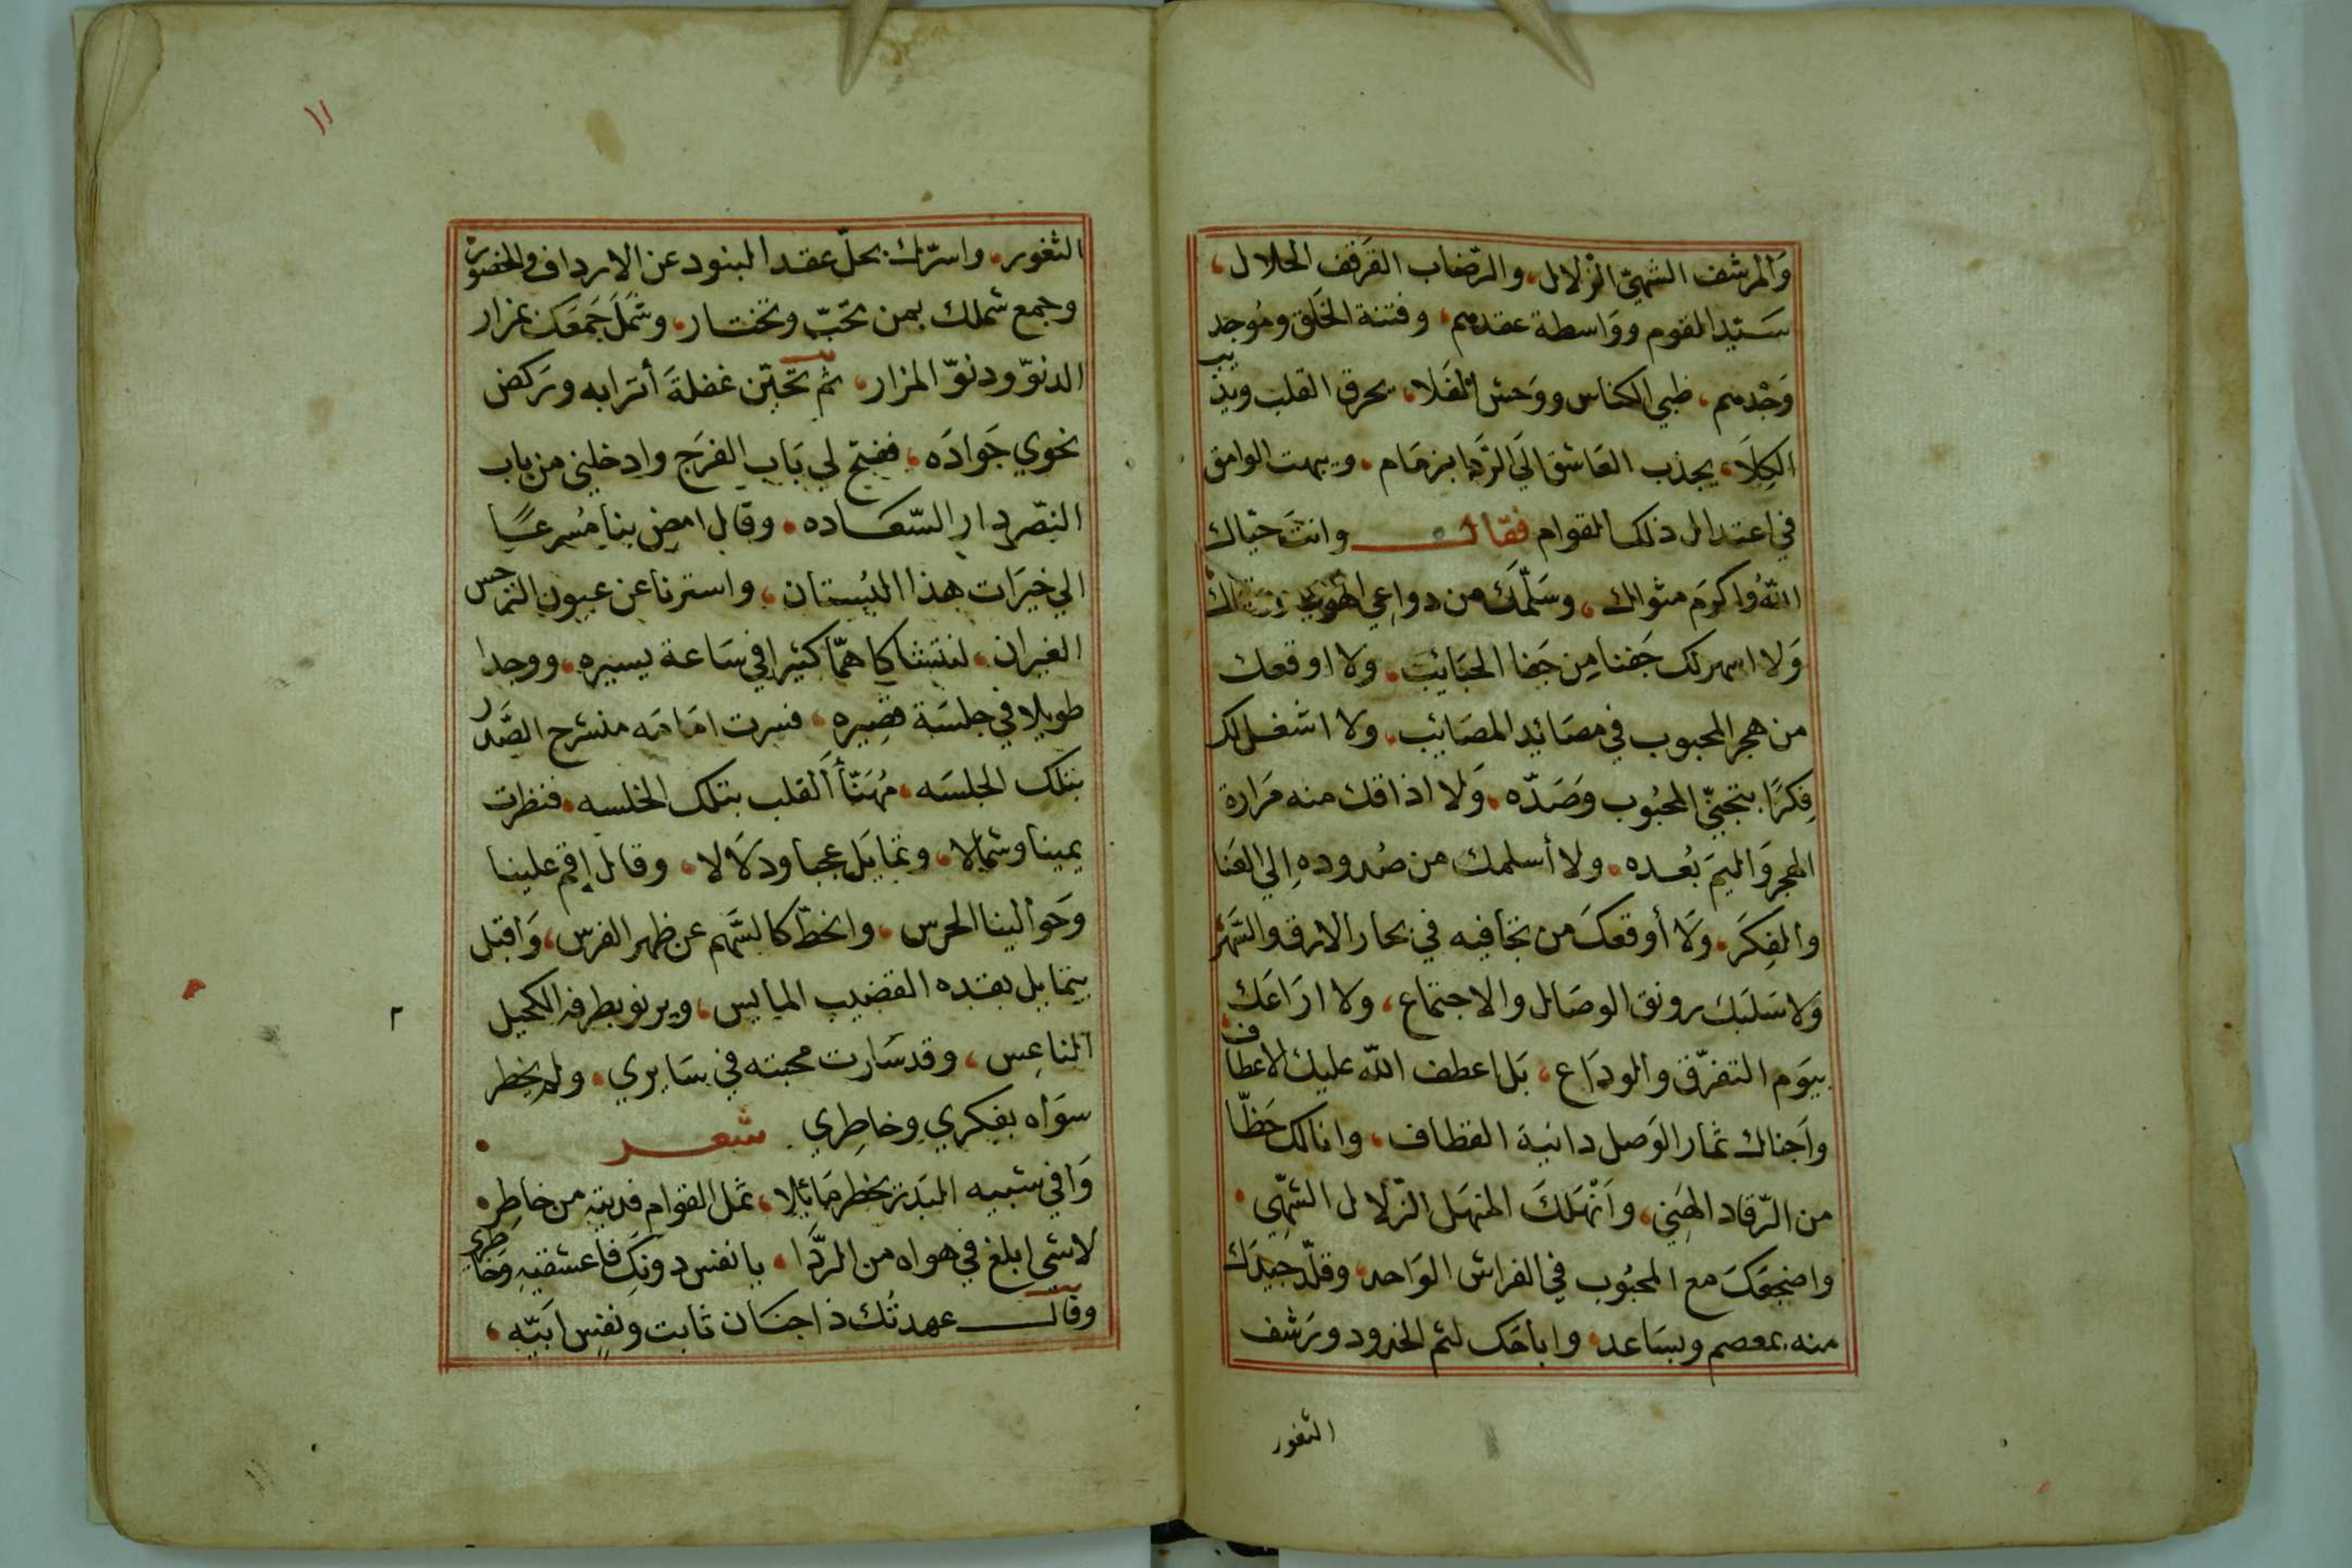 وَالمرشف الشهيّ الزلال، والرّضاب القَرقف الحلال،
سَيّد القوم ووَاسطة عقدهم، وفتنة الخَلق ومُوجد
وَجْدهم، ظبي الكناس ووَحش الفَلا، يحرق القلب ويذيب
الكِلَا، يجذب العَاشق الَي الرَّدَا بزمَام، ويبهت الوامق
في اعتدال ذلك القوام فقال وانتَ حيّاك
اللهُ واكرمَ مثواك، وسَلّمَك من دواعي الهوي
وَلا اسهر لك جَفنا مِن جَفا الحبَائب، ولا اوقعك
من هجر المحبوب في مصَائد المصَائب، ولا اشغل لك
فِكرًا بتجنّي المحبُوب وصَدّه، وَلا اذاقك منه مَرارة
الهجر وَاليمَ بُعده، ولا أسلمك من صُدودهِ الي العَنا
والفِكَر، وَلَا أوقعكَ من تجَافيه في بحار الارق والسَّهَر
وَلا سَلَبَك رونق الوصَال والاجتماع، ولا ارَاعَك
بيَوم التفرّق والودَاع، بَل اعطف الله عليك الاعطاف
واَجناك ثمار الوَصل دانية القطاف، وانالك حَظّا
من الرّقاد الهَنِي، وَاَنْهَلَكَ المنهَل الزّلال الشهِّي
واضجعَكَ مع المحبُوب في الفراش الوَاحد، وقلّد جيدَك
منه بمعصم وبسَاعد، واباحَك لثم الخدود ورَشف
الثغور
١١
الثغور، واسرّك بحلّ عقد البنود عن الارداف والخصور
وجمع شملك بمن تحَبّ وتختار، وشَمَلَ جَمعَك بمزار
الدنوّ ودنوّ المزار، ثم تحَيّن غفلةَ أترابه ورَكض
نحوي جَوادَه، ففتح لي بَاب الفرَج وادخلني من باب
النصر دار السّعَاده، وقال امض بنا مُسرعًا
الي خيَرات هذا البُستان، واسترنا عن عيون النرجس
الغيران، لنتشاكا همّا كثيرا في سَاعة يسيره، ووجدا
طويلا في جلسَة قصِيره، فسرت امَامَه منشرح الصَّدر
بتلك الجلسَه، مُهَنّأ القلب بتلك الخلسه، فنظرت
يمينا وشمالا، وتمايَل عجبا ودلَالا، وقال اقم علينا
وحَوالينا الحرس، وانحَطّ كالسَّهم عن ظهر الفرس، وَاقبل
يتمايل بقده القضيب المايس، ويرنو بطرفه الكحيل
الناعِس، وقد سَارت محبته في سَايري، ولم يخطر
سوَاه بفكري وخاطِري شعر
وَافي شبيه البَدر يخطر مَائلا، ثمل القوام فديته من خاطِر
لا شي ابلغ في هواه من الردَّا، يا نفس دونَكِ فاعشقيهِ وخَاطري
وقال عهدتُك ذا جنَان ثابت ونفسٍ ابَيّه،